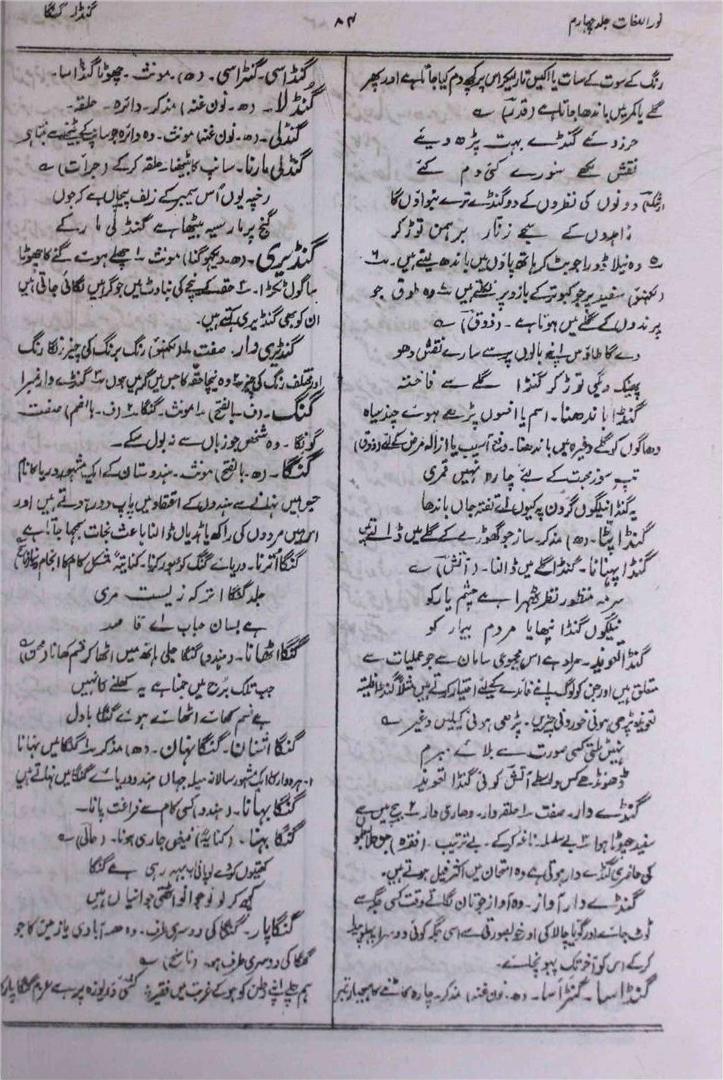 نور اللغات جلد چہارم
۸۴
گنڈا۔ گنگا
رنگ کے سوت کے سات یا اکیس تار لیکر اس پر کچھ دم کیا جاتا ہے اور پھر
گلے یا کمر میں باندھا جاتا ہے (قدرؔ) ؎
حرز و گنڈے بہت پڑھ دیئے
نقش لکھے سنورے کئی دم کئے
دونوں کی نظروں کے دو گنڈے ترے بنواؤں گا
زاہدوں کے سبحے زنار برہمن توڑ کر
۵ وہ نیلا ڈورا جو ہٹ کر ہاتھ پاؤں میں باندھ لیتے ہیں۔ ۶
(لکھنؤ) سفید پر جو کبوتر کے بازو پر نکلتے ہیں ۷ وہ طوق جو
پرندوں کے گلے میں ہوتا ہے۔ (ذوقؔ) ؎
دے گا طاؤس اپنے بالوں پر سے سارے نقش دھو
پھینک دیگی توڑ کر گنڈا گلے سے فاختہ
گنڈا باندھنا۔ اسم یا افسوں پڑھے ہوئے چند سیاہ
دھاگوں کو گلے وغیرہ میں باندھنا۔ دفع آسیب یا ازالہ مرض کے لئے (ذوق)
تپ سوز محبت کے لیے چارہ نہیں قمری
یہ گنڈا نیلگوں گردن پہ کیوں اے تفتہ جاں باندھا
گنڈا پٹا۔ (ھ) مذکر۔ ساز جو گھوڑے کے گلے میں ڈالتے ہیں
گنڈا پہنانا۔ گنڈا گلے میں ڈالنا۔ (آتش) ؎
سرمہ منظور نظر ٹھہرا ہے چشم یار کو
نیلگوں گنڈا پنھایا مردم بیمار کو
گنڈا تعویذ۔ مراد ہے اس مجموعی سامان سے جو عملیات سے
متعلق ہیں اور جن کو لوگ اپنے فائدے کیلئے اختیار کرتے ہیں مثلاً گنڈا فلیتہ
تعویذ پڑھی ہوئی خوردنی چیزیں۔ پڑھی ہوئی کیلیں وغیرہ ؎
نہیں ٹلتی کسی صورت سے بلائے مبرم
ڈھونڈھے کس واسطے آتش کوئی گنڈا تعویذ
گنڈے دار۔ صفت ۱ حلقہ دار۔ دھاری دار ۲ بیچ میں سے
سفید چھوٹا ہوا ۳ بے سلسلہ ناغہ کر کے۔ بے ترتیب۔ (فقرہ) جن طالبعلموں
کی حاضری گنڈے دار ہوتی ہے وہ امتحان میں اکثر فیل ہوتے ہیں۔
گنڈے دار آواز۔ وہ آواز جو تان لگاتے وقت کسی جگہ سے
ٹوٹ جائے اور گویا چالاکی اور خوبصورتی سے اسی جگہ کوئی دوسرا پہلو پیدا
کر کے اس کو آخر تک پہونچائے۔
گنڈاسا۔ گنڑاسا۔ (ھ۔ نون غنہ) مذکر۔ چارہ کاٹنے کا ہتھیار تبر
گنڈاسی۔ گنڑاسی۔ (ھ) مونث۔ چھوٹا گنڈاسا۔
گنڈلا۔ (ھ۔ نون غنہ) مذکر۔ دائرہ۔ حلقہ۔
گنڈلی۔ (ھ۔ نون غنہ) مونث۔ وہ دائرہ جو سانپ کے بیٹھنے سے بنتا ہے
گنڈلی مارنا۔ سانپ کا بیٹھنا، حلقہ کر کے (جرأت) ؎
رخ پہ یوں اس سیمبر کے زلف پیچاں ہے کہ جوں
گنج پر مار سیہ بیٹھا ہے گنڈلی مار کے
گنڈیری۔ (ھ۔ دیکھو گنا) مونث ۱ چھلے ہوئے گنے کا چھوٹا
سا گول ٹکڑا۔ ۲ حقہ کے نیچے کی بناوٹ میں جو گرہیں لگائی جاتی ہیں
ان کو بھی گنڈیری کہتے ہیں۔
گنڈیری دار۔ صفت ۱ (لکھنؤ) رنگ برنگ کی چیز رنگا رنگ
اور مختلف رنگ کی چیز ۲ وہ نیچا حقہ کا جس میں گرہیں ہوں ۳ گنڈے دار نمبر۱
گنگ۔ (ف۔ بالفتح) ۱ مونث۔ گنگا۔ ۲ (ف۔ بالضم) صفت
گونگا۔ وہ شخص جو زباں سے نہ بول سکے۔
گنگا۔ (ھ۔ بالفتح) مونث۔ ہندوستان کے ایک مشہور دریا کا نام
جس میں نہانے سے ہندوں کے اعتقاد میں پاپ دور ہوتے ہیں اور
اس میں مردوں کی راکھ یا ہڈیاں ڈالنا باعث نجات سمجھا جاتا ہے
گنگا اترنا۔ دریائے گنگ کو عبور کرنا۔ کنایتہً مشکل کام کا انجام پانا
جلد گنگا اتر کہ زیست مری
ہے بسان حباب اے قاصد
گنگا اٹھانا۔ (ہندو) گنگا جلی ہاتھ میں اٹھا کر قسم کھانا (محسن) ؎
جب تلک برج میں جمنا ہے یہ کھلنے کا نہیں
ہے قسم کھائے اٹھائے ہوئے گنگا بادل
گنگا اشنان۔ گنگا نہان۔ (ھ) مذکر ۱ گنگا میں نہانا
۲۔ ہردوار کا ایک مشہور سالانہ میلہ جہاں ہندو دریائے گنگا میں نہاتے ہیں
گنگا نہانا۔ (ہندو) کسی کام سے فراغت پانا۔
گنگا بہنا۔ (کنایۃً) فیض جاری ہونا۔ (حالی) ؎
کھیتوں کو دے لو پانی اب بہہ رہی ہے گنگا
کچھ کر لو نوجوانو اٹھتی جوانیاں ہیں
گنگا پار۔ گنگا کی دوسری طرف۔ وہ حصہ آبادی یا زمین کا جو
گنگا کی دوسری طرف ہو۔ (ناسخ) ؎
ہم چلے اپنے وطن کو ہو کے غربت میں فقیر؎ کشتی دریوزہ پر ہے عزم گنگا پار کا